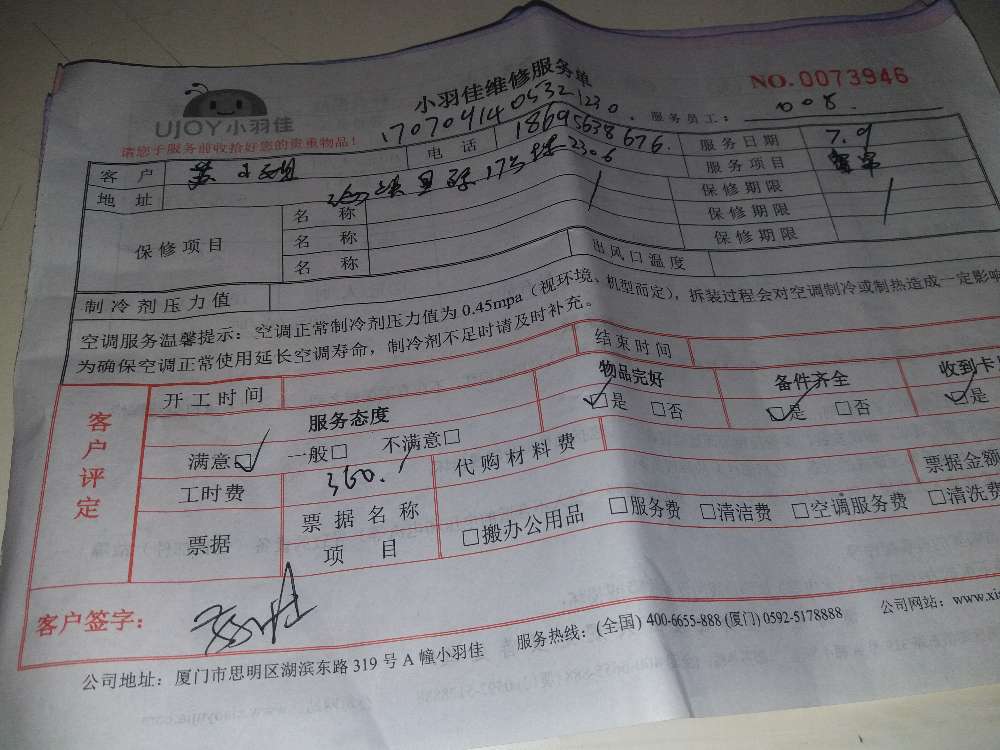 UJOY小羽佳
小羽佳维修服务单
NO.0073946
1707091405321230
服务员工: 008.
请您于服务前收拾好您的贵重物品!
客户
电话 18695638676.
服务日期 7.9
地址 17 2306
服务项目
保修项目
名称 保修期限
名称 保修期限
名称 保修期限
制冷剂压力值
出风口温度
空调服务温馨提示:空调正常制冷剂压力值为0.45mpa(视环境、机型而定),拆装过程会对空调制冷或制热造成一定影响
为确保空调正常使用延长空调寿命,制冷剂不足时请及时补充。
客户评定
开工时间
结束时间
服务态度
物品完好
备件齐全
收到卡
满意□ 一般□ 不满意□
□是 □否
□是 □否
□是
工时费 360.
代购材料费
票据
票据名称
票据金额
项目
□搬办公用品 □服务费 □清洁费 □空调服务费 □清洗费
客户签字:
公司地址:厦门市思明区湖滨东路319号A幢小羽佳 服务热线:(全国) 400-6655-888 (厦门) 0592-5178888 公司网站:www.xia